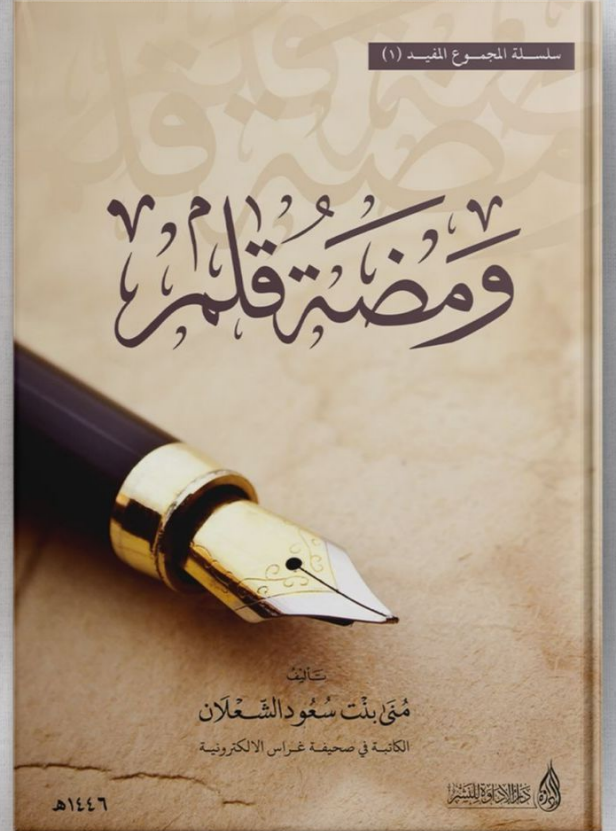 سلسلة المجموع المفيد (١)
ومضة قلم
تأليف
منى بنت سعود الشعلان
الكاتبة في صحيفة غراس الالكترونية
١٤٤٦هـ